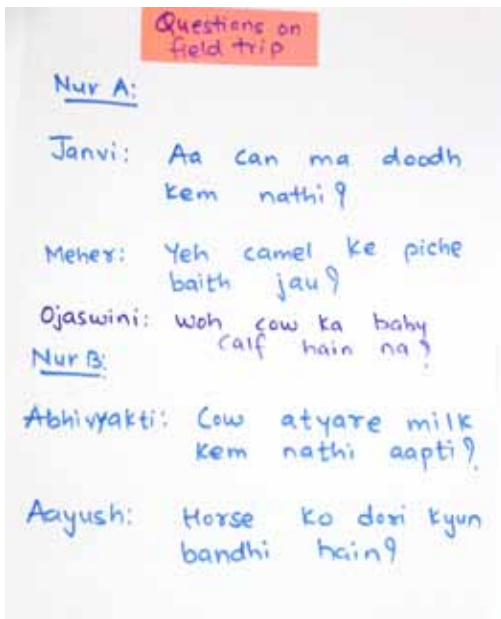 Questions on
field trip
Nur A:
Janvi: Aa can ma doodh
kem nathi?
Meher: Yeh camel ke piche
baith jau?
Ojaswini: Woh cow ka baby
calf hain na?
Nur B:
Abhivyakti: Cow atyare milk
kem nathi aapti?
Aayush: Horse ko dori kyun
bandhi hain?